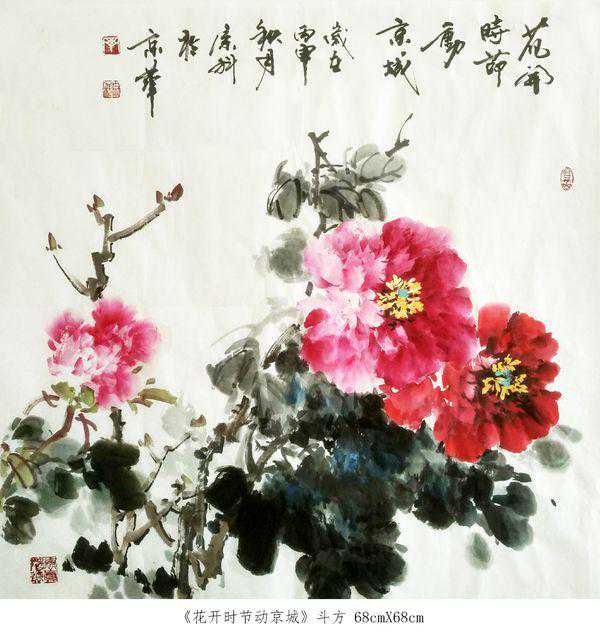 花開
時節
動
京城
歲在
丙申
秋月
於
京華
《花开时节动京城》斗方 68cmX68cm